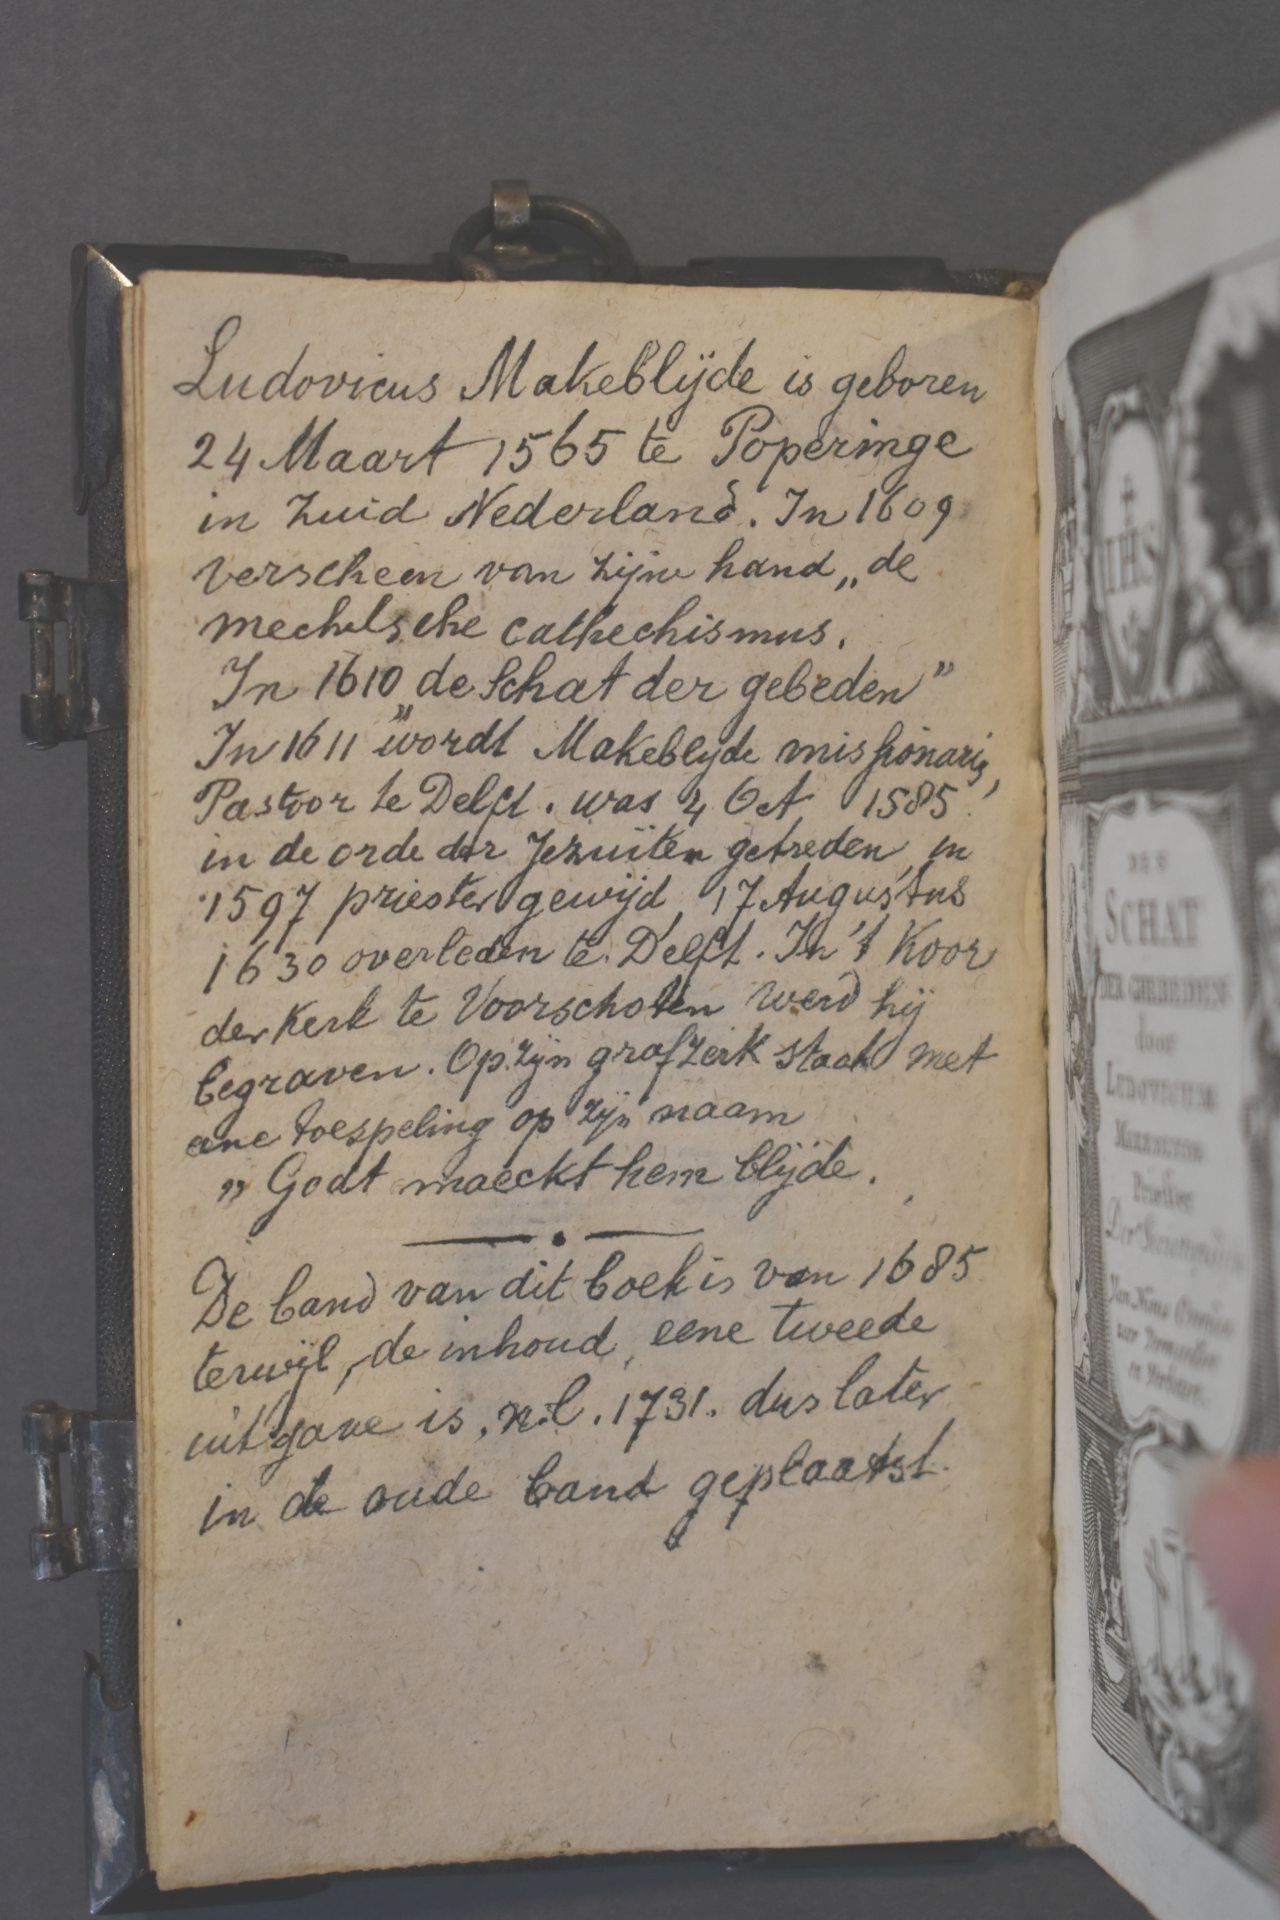 Ludovicus Makeblijde is geboren
24 Maart 1565 te Poperinge
in Zuid Nederland. In 1609
verscheen van zijne hand „de
mechelsche cathechismus.
In 1610 „de Schat der gebeden”
In 1611 wordt Makeblyde missionaris,
Pastoor te Delft. was 4 Oct 1585
in de orde der Jezuïten getreden in
1597 priester gewijd, 17 Augustus
1630 overleden te Delft. In 't Koor
der Kerk te Voorschoten werd hij
begraven. Op zijn grafzerk staat met
eene toespeling op zijn naam
„Godt maeckt hem blijde.
De band van dit boek is van 1685
terwijl, de inhoud, eene tweede
uitgave is, n.l. 1731. dus later
in de oude band geplaatst.
IHS
DEN
SCHAT
DER GEBEDEN
door
LUDOVICUM
MAKEBLYDE
Priester
Der Societeyt